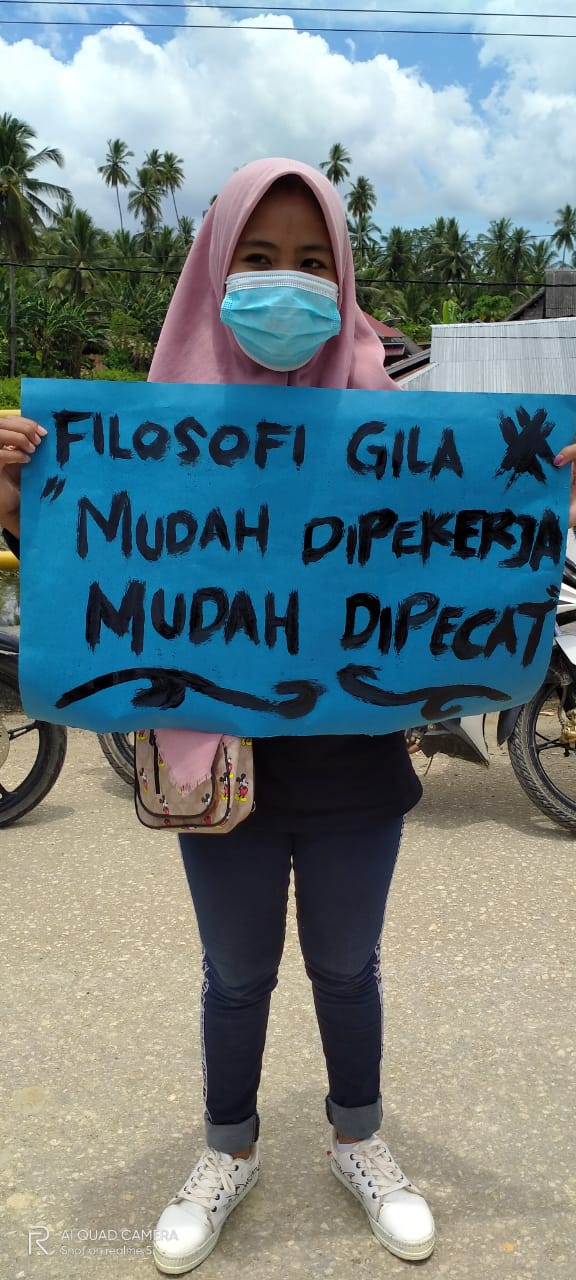 FILOSOFI GILA
"MUDAH DIPEKERJA
MUDAH DIPECAT"
R AI QUAD CAMERA
Shot on realme 5i